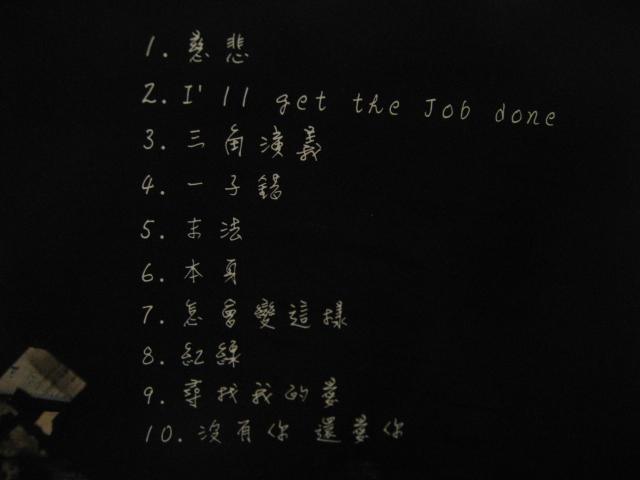 1. 慈悲
2. I'll get the Job done
3. 三角演義
4. 一子錯
5. 末法
6. 本身
7. 怎會變這樣
8. 紅線
9. 尋找我的夢
10. 沒有你 還夢你